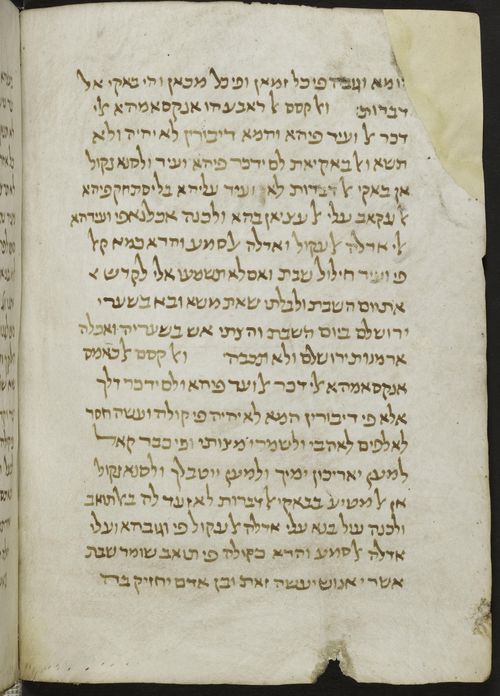 יומא וגובה פי כל זמאן ופי כל מכאן והי באקי אל
דברות׃ ואלקסם אלראבע הו אנקסאמהא אלי
דכר אלועיד פיהא והמא דיבורין לא יהיה ולא
תשא ואלבאקיאת לם ידכר פיהא ועיד ולסנא נקול
אן באקי אלדברות לא ועיד עליהא בל יסתחק פיהא
אלעקאב עלי אלעציאן בהא ולכנה אכלנא פי ועידהא
אלי אדלה אלעקול ואדלה אלסמע והדא כמא קאל
פי ועיד חילול שבת ואם לא תשמעו אלי לקדש
את יום השבת ולבלתי שאת משא ובא בשערי
ירושלם ביום השבת והצתי אש בשעריה ואכלה
ארמנות ירושלם ולא תכבה׃ ואלקסם אלכאמס
אנקסאמהא אלי דכר אלועד פיהא ולם ידכר דלך
אלא פי דיבורין המא לא יהיה פי קולה ועשה חסד
לאלפים לאהבי ולשמרי מצותי ופי כבד קאל
למען יאריכון ימיך ולמען ייטב לך ולסנא נקול
אן אלמטיע בבאקי אלדברות לא ועד לה באלתואב
ולכנה עול בנא עלי אדלה אלעקול פי וגובהא ועלי
אדלה אלסמע והדא כקולה פי תואב שומר שבת
אשרי אנוש יעשה זאת ובן אדם יחזיק בה